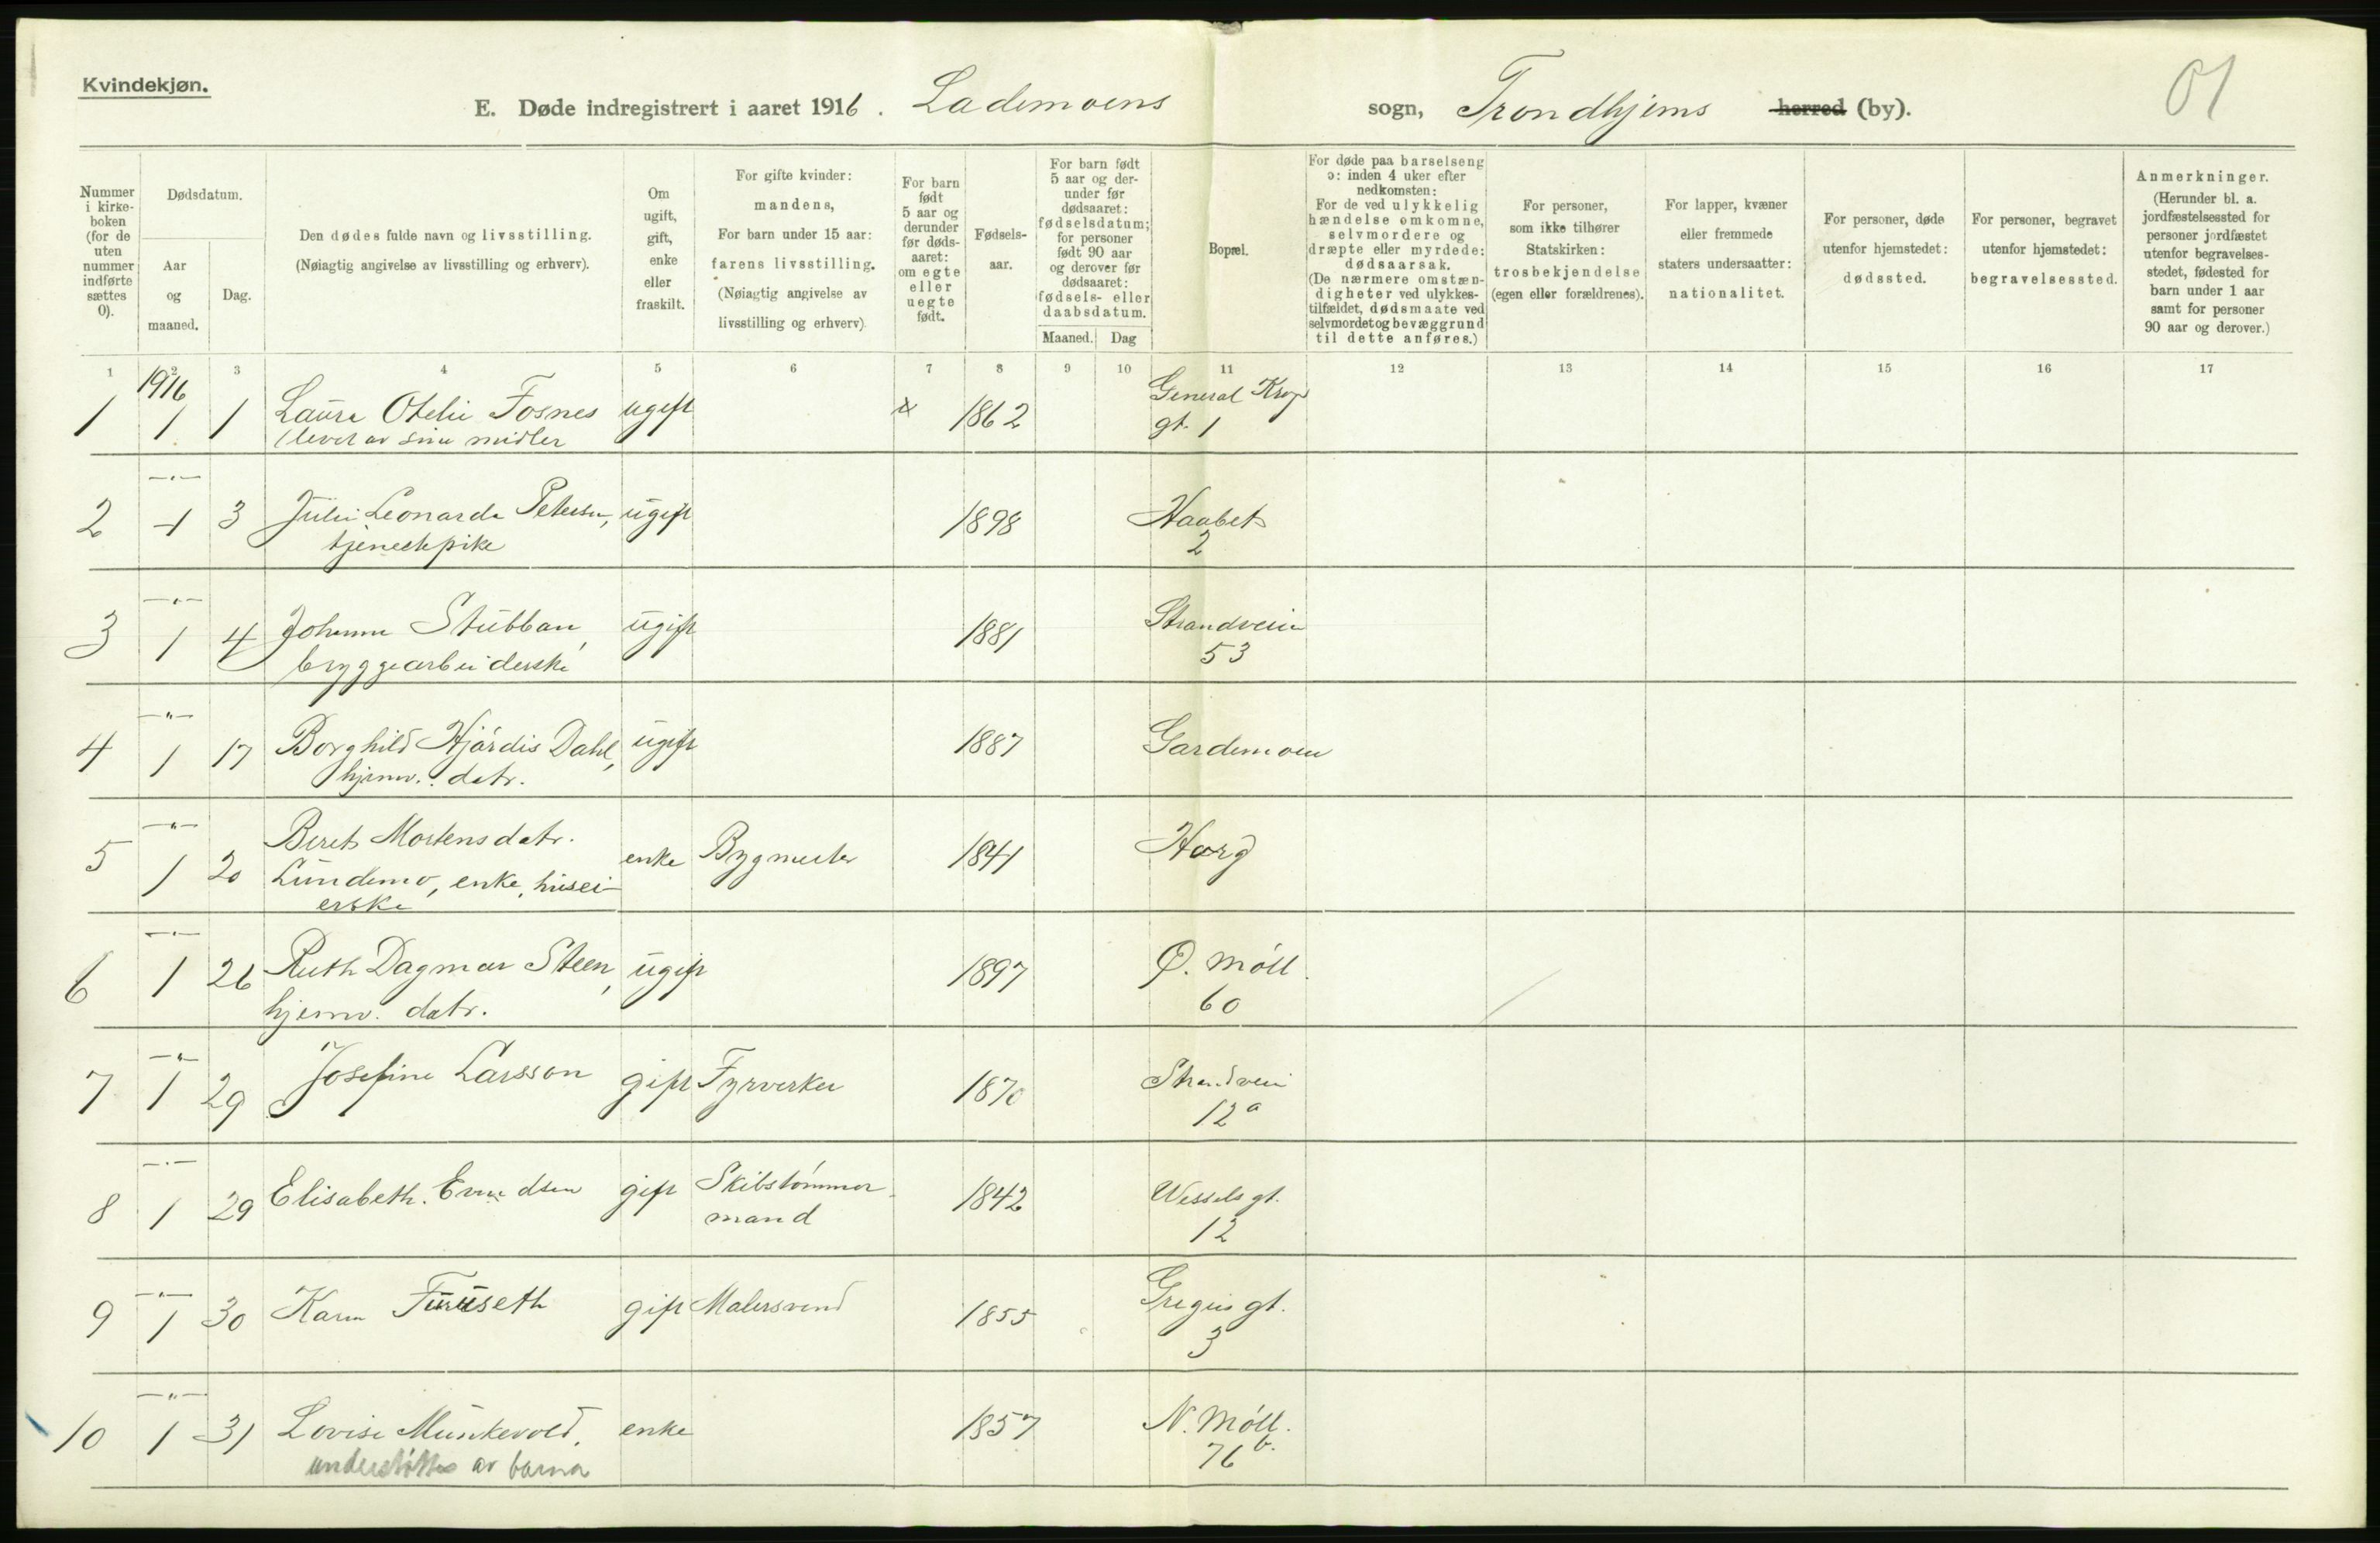 Kvindekjøn.
E. Døde indregistrert i aaret 1916. Lademoens sogn, Trondhjems herred (by).
01
Nummer i kirke-boken (for de uten nummer indførte sættes 0).
Dødsdatum.
Aar og maaned.
Dag.
Den dødes fulde navn og livsstilling.
(Nøiagtig angivelse av livsstilling og erhverv).
Om ugift, gift, enke eller fraskilt.
For gifte kvinder: mandens,
For barn under 15 aar: farens livsstilling.
(Nøiagtig angivelse av livsstilling og erhverv)
For barn født 5 aar og derunder før døds-aaret: om egte eller uegte født.
Fødsels-aar.
For barn født 5 aar og der-under før dødsaaret: fødselsdatum; for personer født 90 aar og derover før dødsaaret: fødsels- eller daabsdatum.
Maaned. Dag
Bopæl.
For døde paa barselseng ɔ: inden 4 uker efter nedkomsten:
For de ved ulykkelig hændelse omkomne, selvmordere og dræpte eller myrdede: dødsaarsak.
(De nærmere omstæn-digheter ved ulykkes-tilfældet, dødsmaate ved selvmordet og bevæggrund til dette anføres.)
For personer, som ikke tilhører Statskirken: trosbekjendelse (egen eller forældrenes).
For lapper, kvæner eller fremmede staters undersaatter: nationalitet.
For personer, døde utenfor hjemstedet: dødssted.
For personer, begravet utenfor hjemstedet: begravelsessted.
Anmerkninger.
(Herunder bl. a. jordfæstelsessted for personer jordfæstet utenfor begravelses-stedet, fødested for barn under 1 aar samt for personer 90 aar og derover.)
1 2 3 4 5 6 7 8 9 10 11 12 13 14 15 16 17
1916
1 1 1 Laura Otelie Fosnes ugift x 1862 General
(levet av sine midler gt. 1
—"—
2 1 3 Julie Leonarda Petersen, ugift 1898 Haabet
tjenestepike 2
—"—
3 1 4 Johanna Stubban, ugift 1881 Strandveien
bryggearbeiderske 53
—"—
4 1 17 Borghild Hjørdis Dahl, ugift 1887 Gardemoen
hjemv. datr.
—"—
5 1 20 Beret Mortensdatr. enke Bygmester 1841 Horg
Lundemo, enke, husei-
erske
—"—
6 1 26 Ruth Dagmar Steen, ugift 1897 Ø. Møll.
hjemv. datr. 60
—"—
7 1 29 Josefine Larsson gift Fyrverker 1870 Strandvei
12a
—"—
8 1 29 Elisabeth gift Skibstømmer- 1842 Wessels gt.
mand 12
—"—
9 1 30 Karen Furuseth gift Malersvend 1855 gt.
3
—"—
10 1 31 Lovise Munkevold, enke 1857 N. Møll.
understøttes av barna 76b.